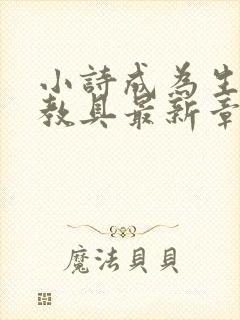 小詩成為生
教具最新章
魔法貝貝